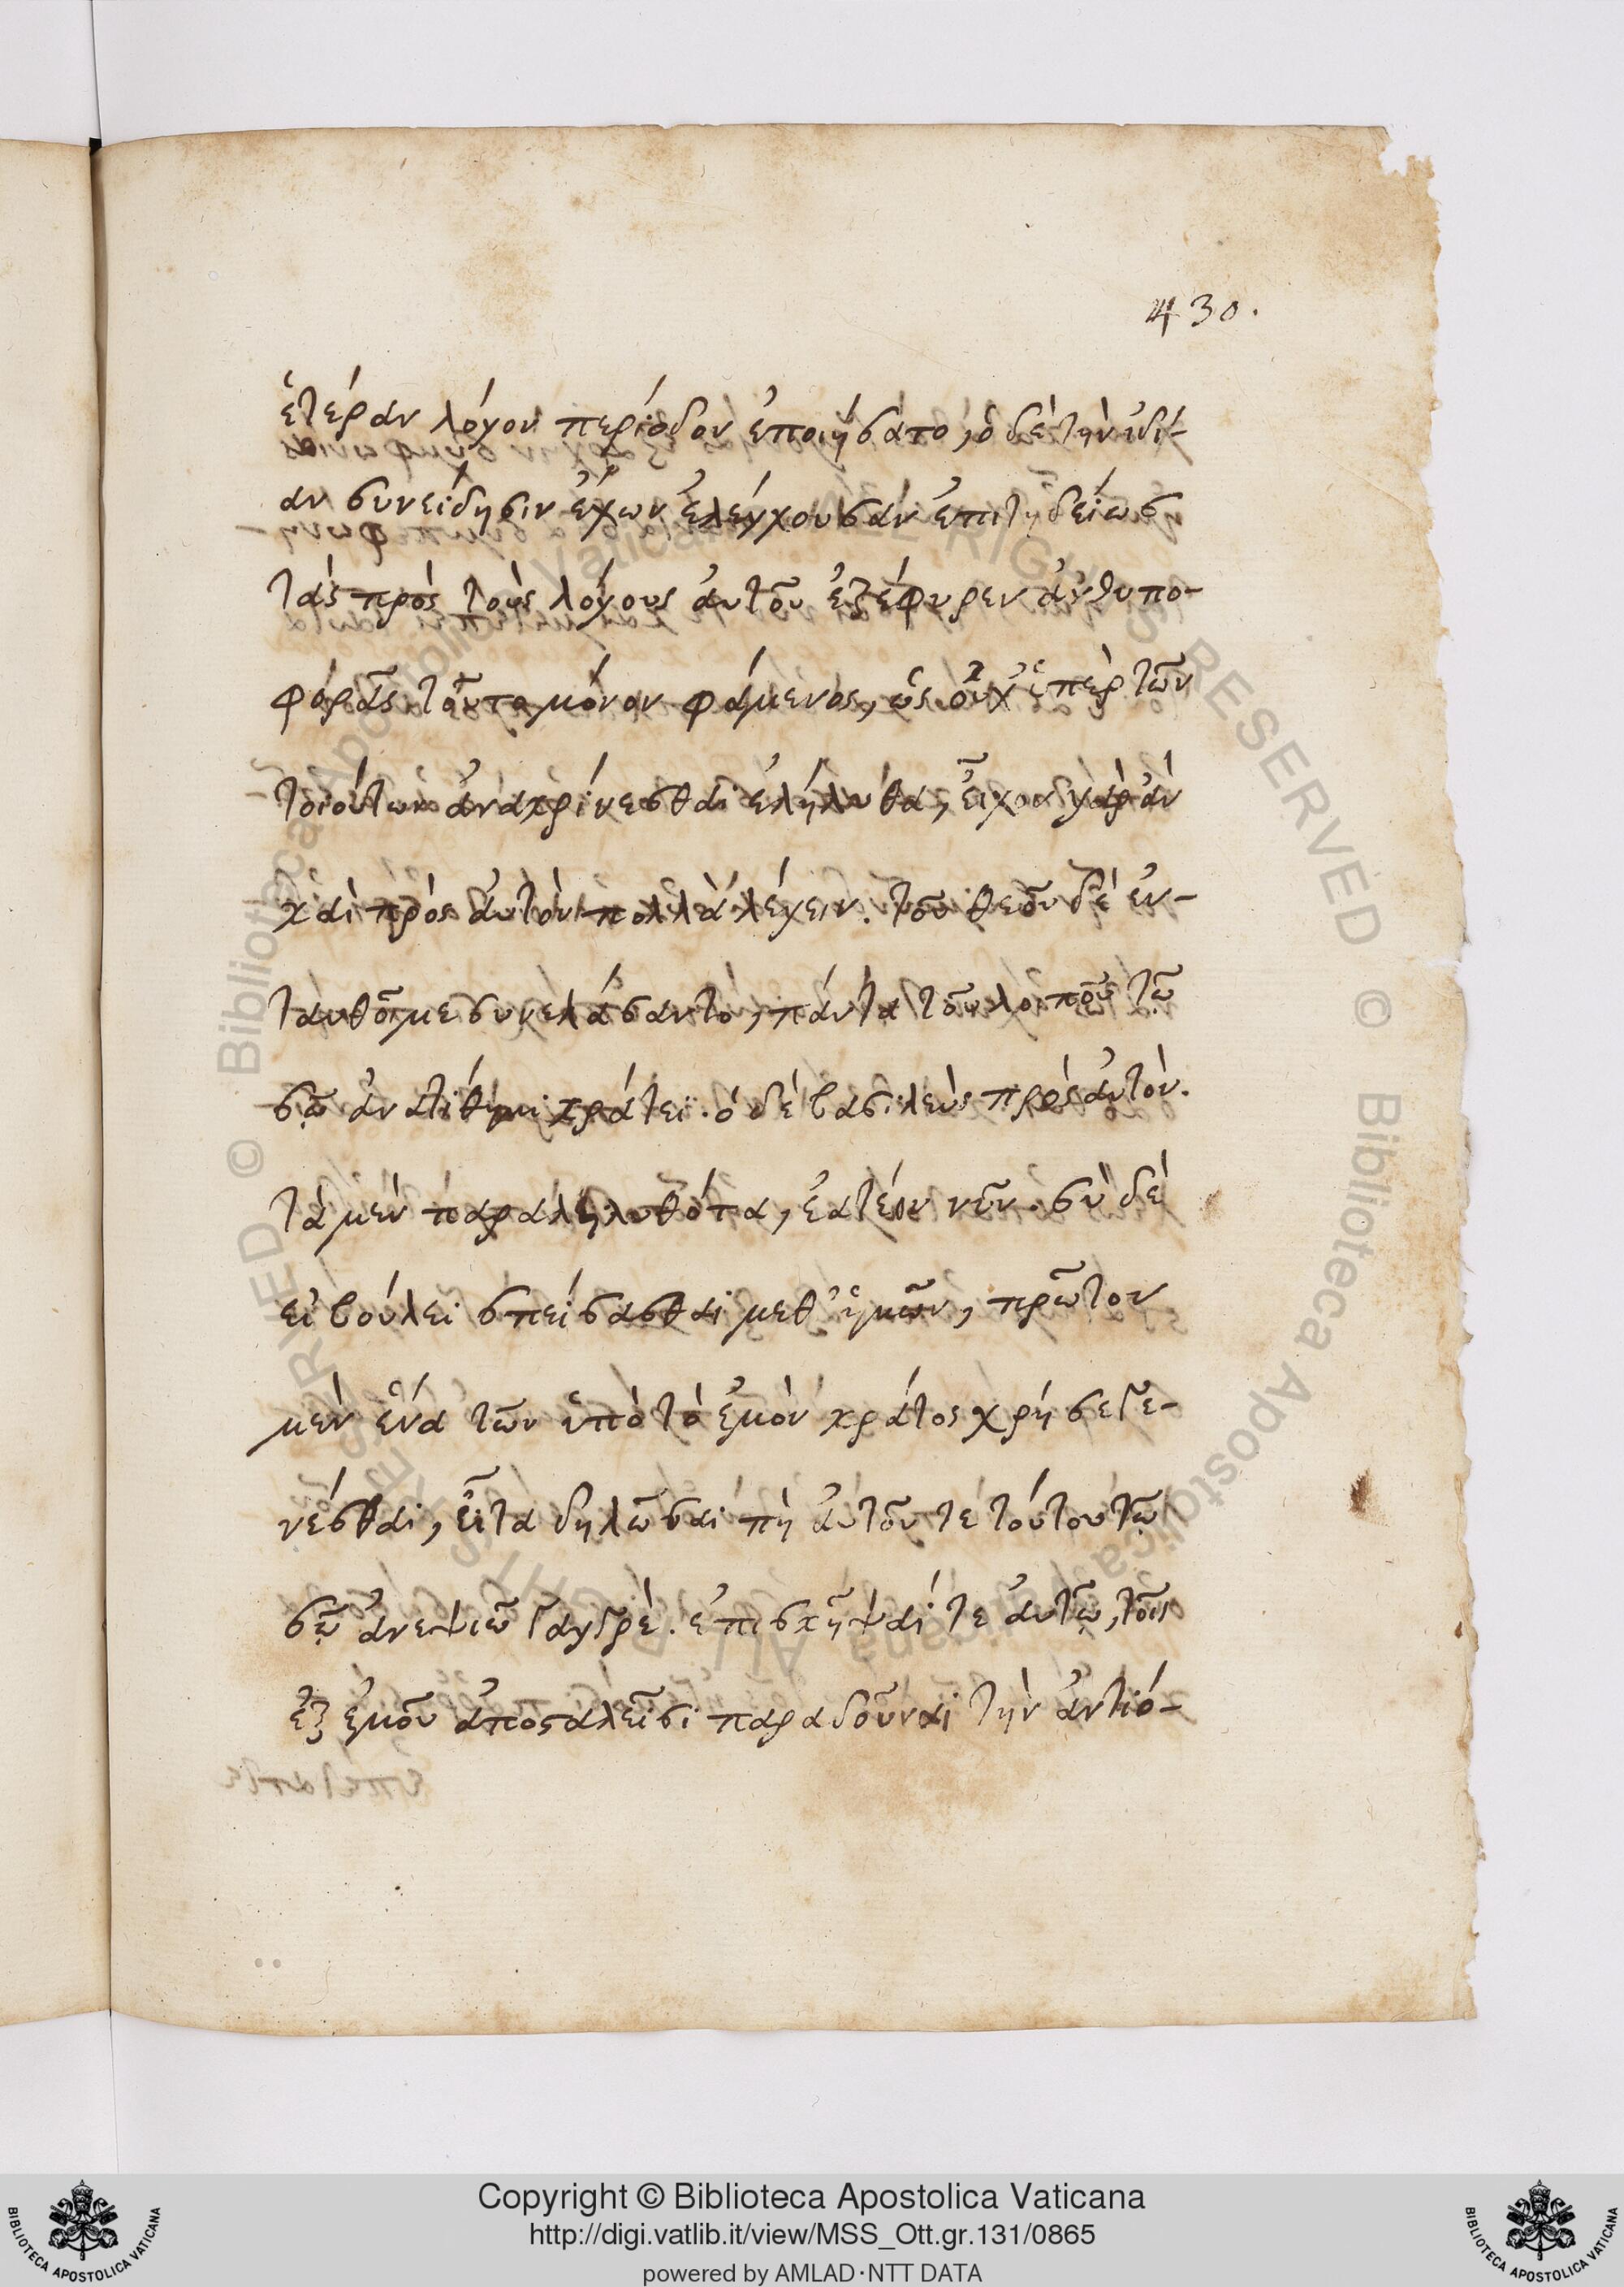 430.
ἑτέραν λόγου περίοδον ἐποιήσατο, ὁ δὲ τὴν ἰδί-
αν συνείδησιν ἔχων ἐλέγχουσαν ἐπιτηδείως
τὰς πρὸς τοὺς λόγους αὐτοῦ ἐξέφυγεν ἀνθυπο-
φορὰς ταῦτα μόνον φάμενος, ὡς οὐχ ὑπὲρ τῶν
τοιούτων ἀνακρίνεσθαι ἐλήλυθα, εἶχον γὰρ ἂν
καὶ πρὸς αὐτὸν πολλὰ λέγειν. τοῦ θεοῦ δὲ ἐν-
ταυθοῖ με συνελάσαντος, πάντα τοῦ λοιποῦ τῷ
σῷ ἀνατίθημι κράτει. ὁ δὲ βασιλεὺς πρὸς αὐτόν.
τὰ μὲν παραληλυθότα, ἐατέον νῦν. σὺ δὲ
εἰ βούλει σπείσασθαι μεθ' ἡμῶν, πρῶτον
μὲν ἕνα τῶν ὑπὸ τὸ ἐμὸν κράτος χρή σε γε-
νέσθαι, εἶτα δηλῶσαι πῆ αὐτοῦ τε τούτου τῷ
σῷ ἀνεψιῷ Ταγγρὲ. ἐπισκῆψαί τε αὐτῷ, τοῖς
ἐξ ἐμοῦ ἀποσταλεῖσι παραδοῦναι τὴν ἀντιό-
Copyright © Biblioteca Apostolica Vaticana
http://digi.vatlib.it/view/MSS_Ott.gr.131/0865
powered by AMLAD·NTT DATA